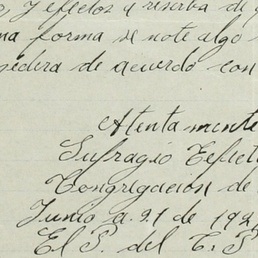 y efectos a reserva de
na forma se note algo
sedera de acuerdo con
Atentamente
Sufragio Efecti
Congregacion de
Junio a 21 de 192
El P. del C. P